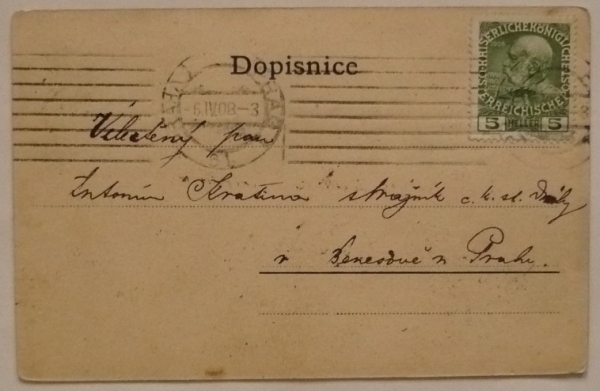 Dopisnice
KAISERLICHE KÖNIGLICHE
ÖSTERREICHISCHE
1908
5 HELLER 5
6 IV 08-3
Velectěný pan
Antonín Kratina strážník c. k. st. Dráhy
v Benešově u Prahy.